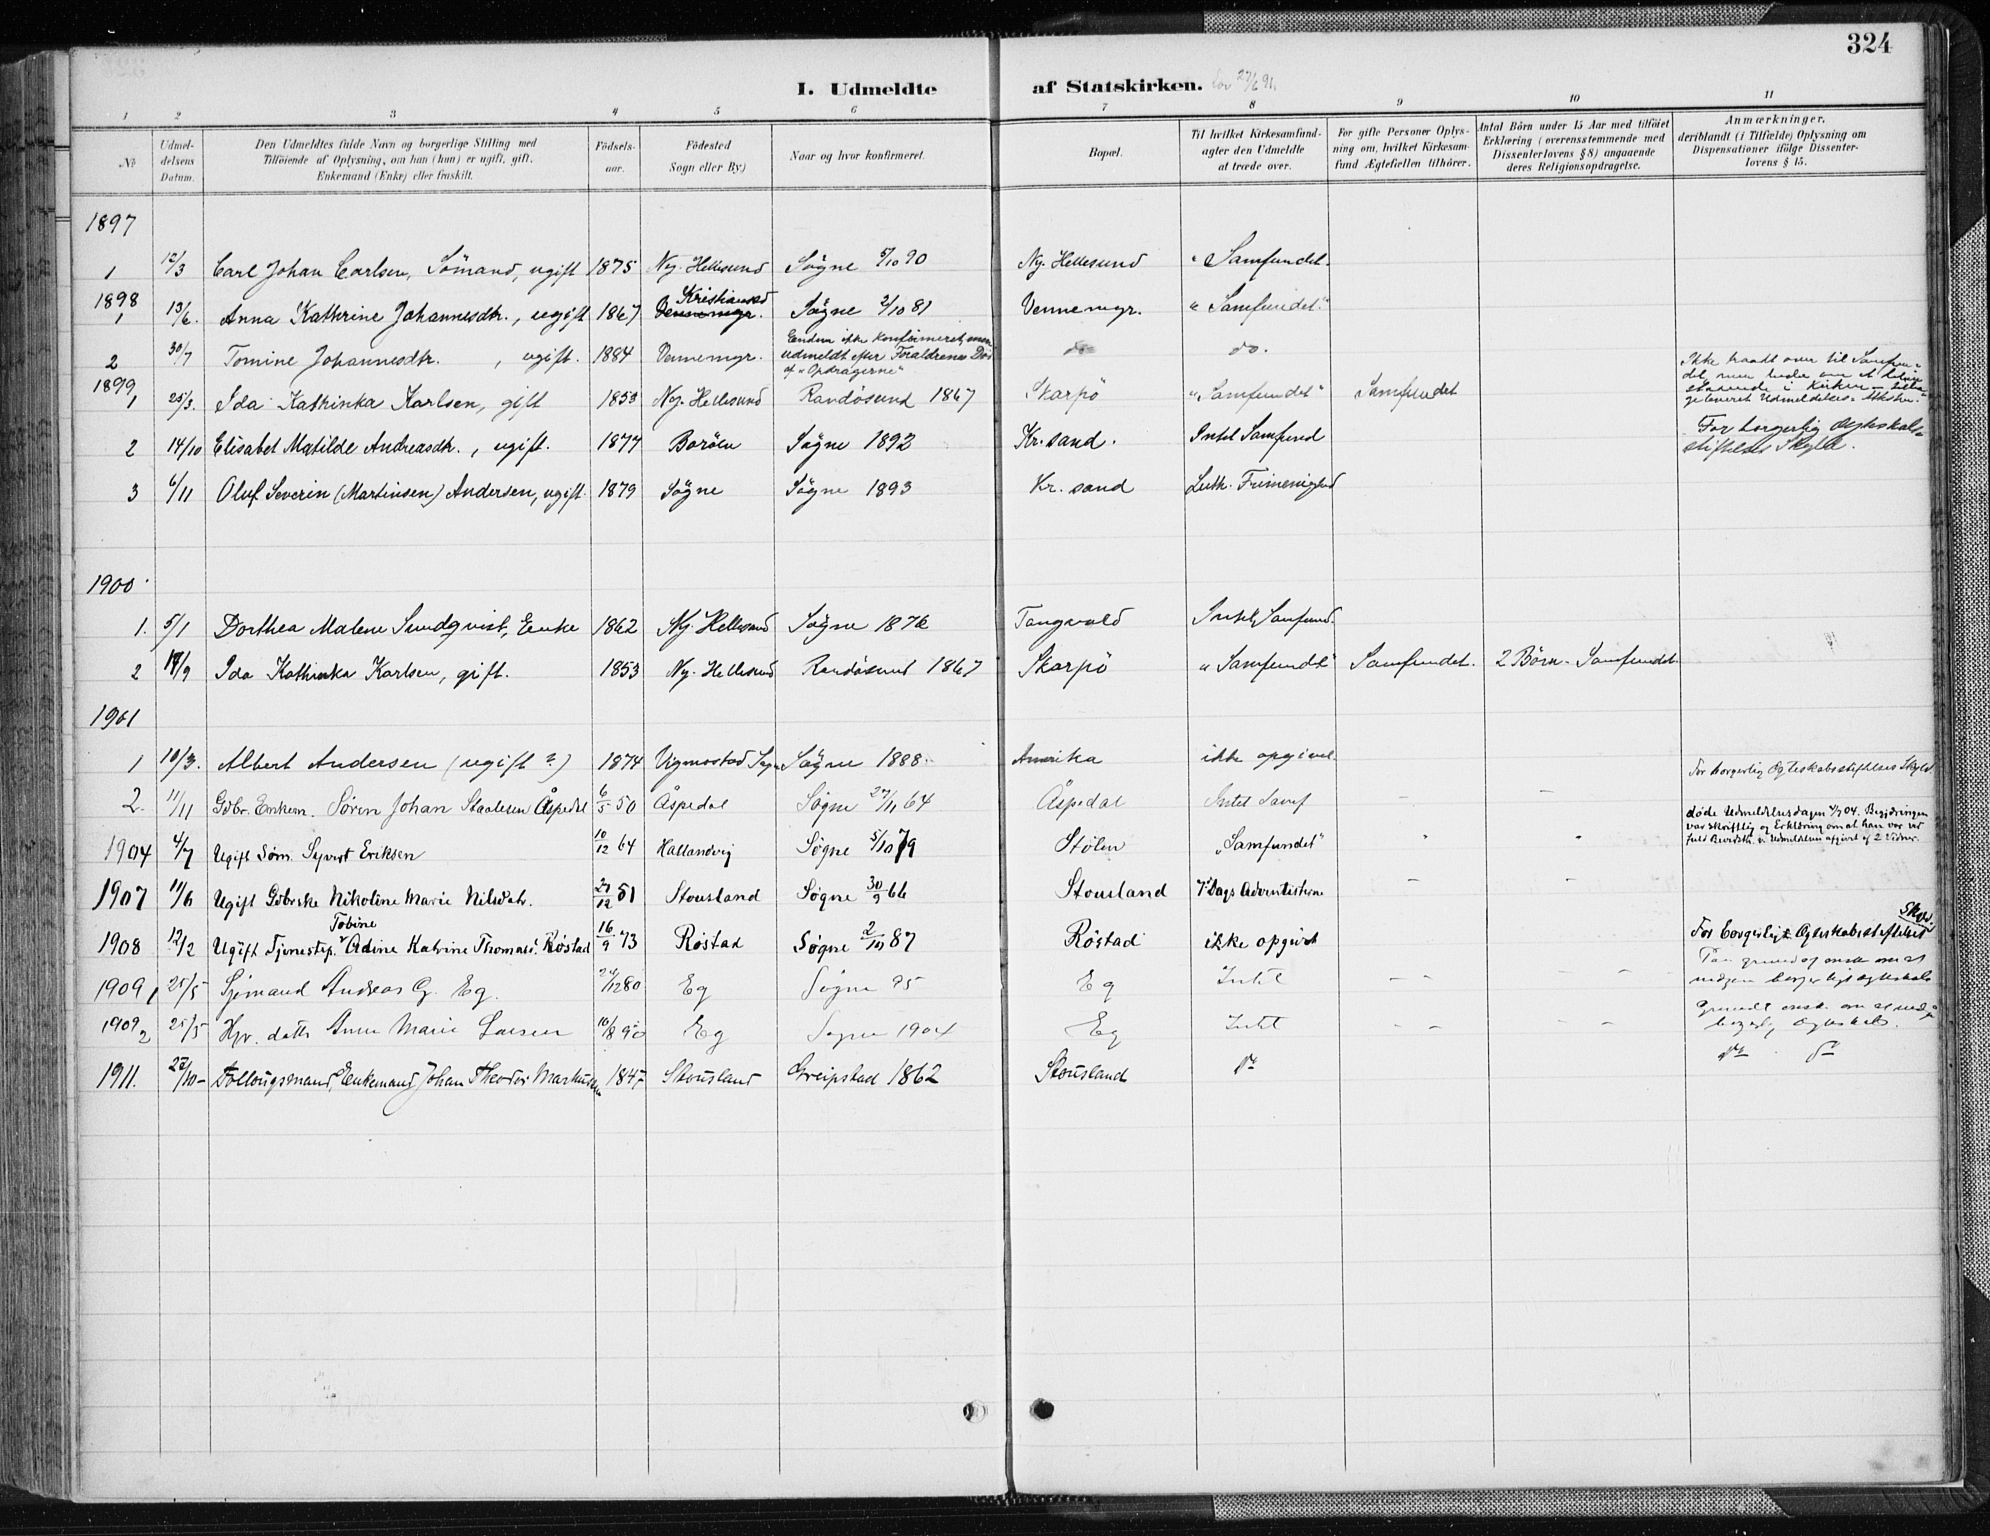 324
I. Udmeldte af Statskirken. Lov 27/6 91.
1 2 3 4 5 6 7 8 9 10 11
No
Udmel-
delsens
Datum.
Den Udmeldtes fulde Navn og borgerlige Stilling med
Tilføiende af Oplysning, om han (hun) er ugift, gift,
Enkemand (Enke) eller fraskilt.
Födsels-
aar.
Födested
Sogn eller By)
Naar og hvor konfirmeret.
Bopæl.
Til hvilket Kirkesamfund-
agter den Udmeldte
at træde over.
For gifte Personer Oplys-
ning om, hvilket Kirkesam-
fund Ægtefællen tilhörer.
Antal Börn under 15 Aar med tilföiet
Erklæring (overensstemmende med
Dissenterlovens § 8) angaaende
deres Religionsopdragelse.
Anmærkninger,
deriblandt (i Tilfælde) Oplysning om
Dispensationer ifölge Dissenter-
lovens § 15.
1897
1 12/3 Carl Johan Carlsen, Sömand, ugift 1875 Ny. Hellesund Søgne 5/10 90 Ny. Hellesund "Samfundet.
1898
1 13/6. Anna Kathrine Johannesdtr., ugift 1867 Kristiansand Vennemyr. Søgne 2/10 81 Vennemyr. "Samfundet."
2 30/7 Tomine Johannesdtr., ugift. 1884 Vennemyr. Endnu ikke konfirmeret, men
udmeldt efter Forældrenes Død
af "Opdragerne" do do.
1899
1 25/3. Ida Kathinka Karlsen, gift 1853 Ny. Hellesund Randøsund 1867 Skarpö "Samfundet" Samfundet Ikke traadt over til Samfun-
det, men
i Kirken
Udmeldelses-
2 14/10 Elisabet Matilde Andreasdtr., ugift. 1877 Borøen Søgne 1892 Kr.sand. Intet Samfund For borgerlig Ægteskabs-
stiftelses Skyld.
3 6/11 Oluf Severin (Martinsen) Andersen, ugift. 1879 Søgne Søgne 1893 Kr. sand Luth. Frimenighed
1900
1. 5/1 Dorthea Malene Sundqvist, Enke 1862 Ny. Hellesund Søgne 1876 Tangvald Intet Samfund.
2 19/9 Ida Kathinka Karlsen, gift. 1853 Ny. Hellesund Randøsund 1867 Skarpö "Samfundet" Samfundet. 2 Børn - Samfundet
1901
1 10/3. Albert Andersen (ugift?) 1874 Vigmostad Søgne 1888. Amerika ikke opgivet. For borgerlig Ægteskabsstiftelses Skyld.
2. 11/11 Gdbr. Enkem. Søren Johan Staalesen Åspedal 6/5 50 Åspedal Søgne 27/11 64 Åspedal Intet Samf - -
1904 4/7 Ugift Søm. Syvert Eriksen 10/12 64 Hallandvig Søgne 5/10 79 Stølen "Samfundet" " " døde Udmeldelsesdagen 4/7 04. Begjæringen
var skriftlig og Erklæring om at han var ved
fuld Bevidsth. v. Udmeldelsen afgivet af 2 Vidner.
1907 11/6 Ugift Gdbrske Nikoline Marie Nilsdatr. 27/12 51 Stousland Søgne 30/9 66 Stousland 7. Dags Adventisterne - -
1908 12/2 Ugift Tjenestep. Tobine Adine Katrine Thomasd. Røstad 16/9 73 Røstad Søgne 2/10 87 Röstad ikke opgivet For borgerligt Ægteskabsstiftelses
Skyld
1909 1 25/5 Sjømand Andreas G. Eg. 24/12 80 Eg Søgne 95 Eg Intet - - - - Paa grund af ønske om at
indgaa borgerligt ægteskab
1909 2 25/5 Hjv. datter Anna Marie Larsen 16/8 90 Eg Søgne 1904 Eg Intet - - - - Grundet ønske om at indgaa
borgerlig Ægteskab.
1911. 27/10- Follougsmand, Enkemand Johan Theodor Markussen 1847 Stousland Greipstad 1862 Stousland do do do